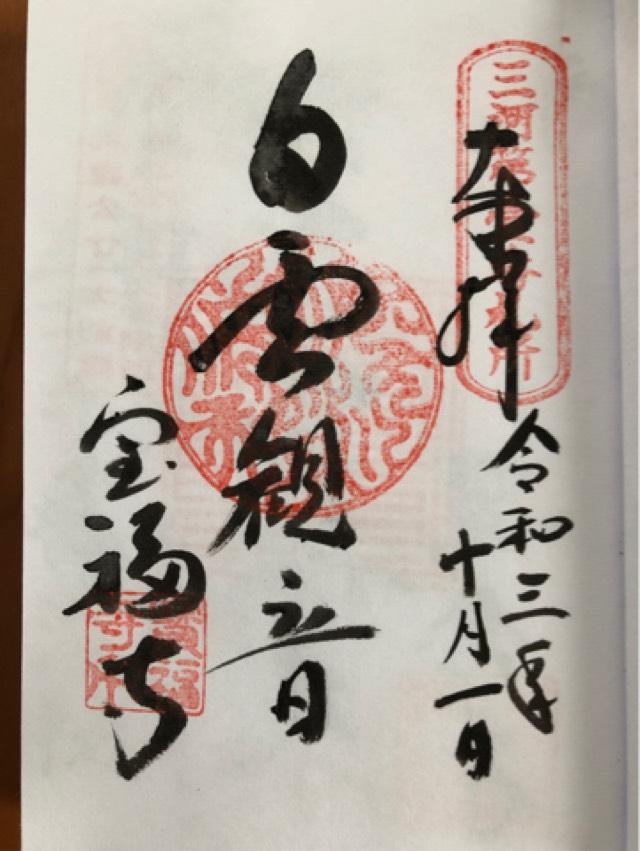 奉拝
令和三年
十月一日
白雲観音
宝福寺